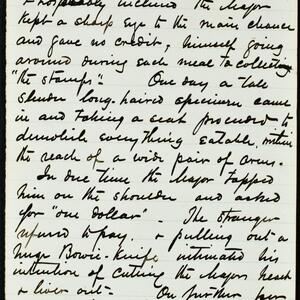 & hospitably inclined the Major
kept a sharp eye to the main chance
and gave no credit, himself going
around during each meal to collecting
"the stamps". One day a tall
slender long-haired specimen came
in and taking a seat proceeded to
demolish everything eatable within
the reach of a wide pair of arms.
In due time the Major tapped
him on the shoulder and asked
for "one dollar". The stranger
refused to pay. & pulling out a
huge Bowie-Knife intimated his
intention of cutting the Majors heart
& liver out. On further